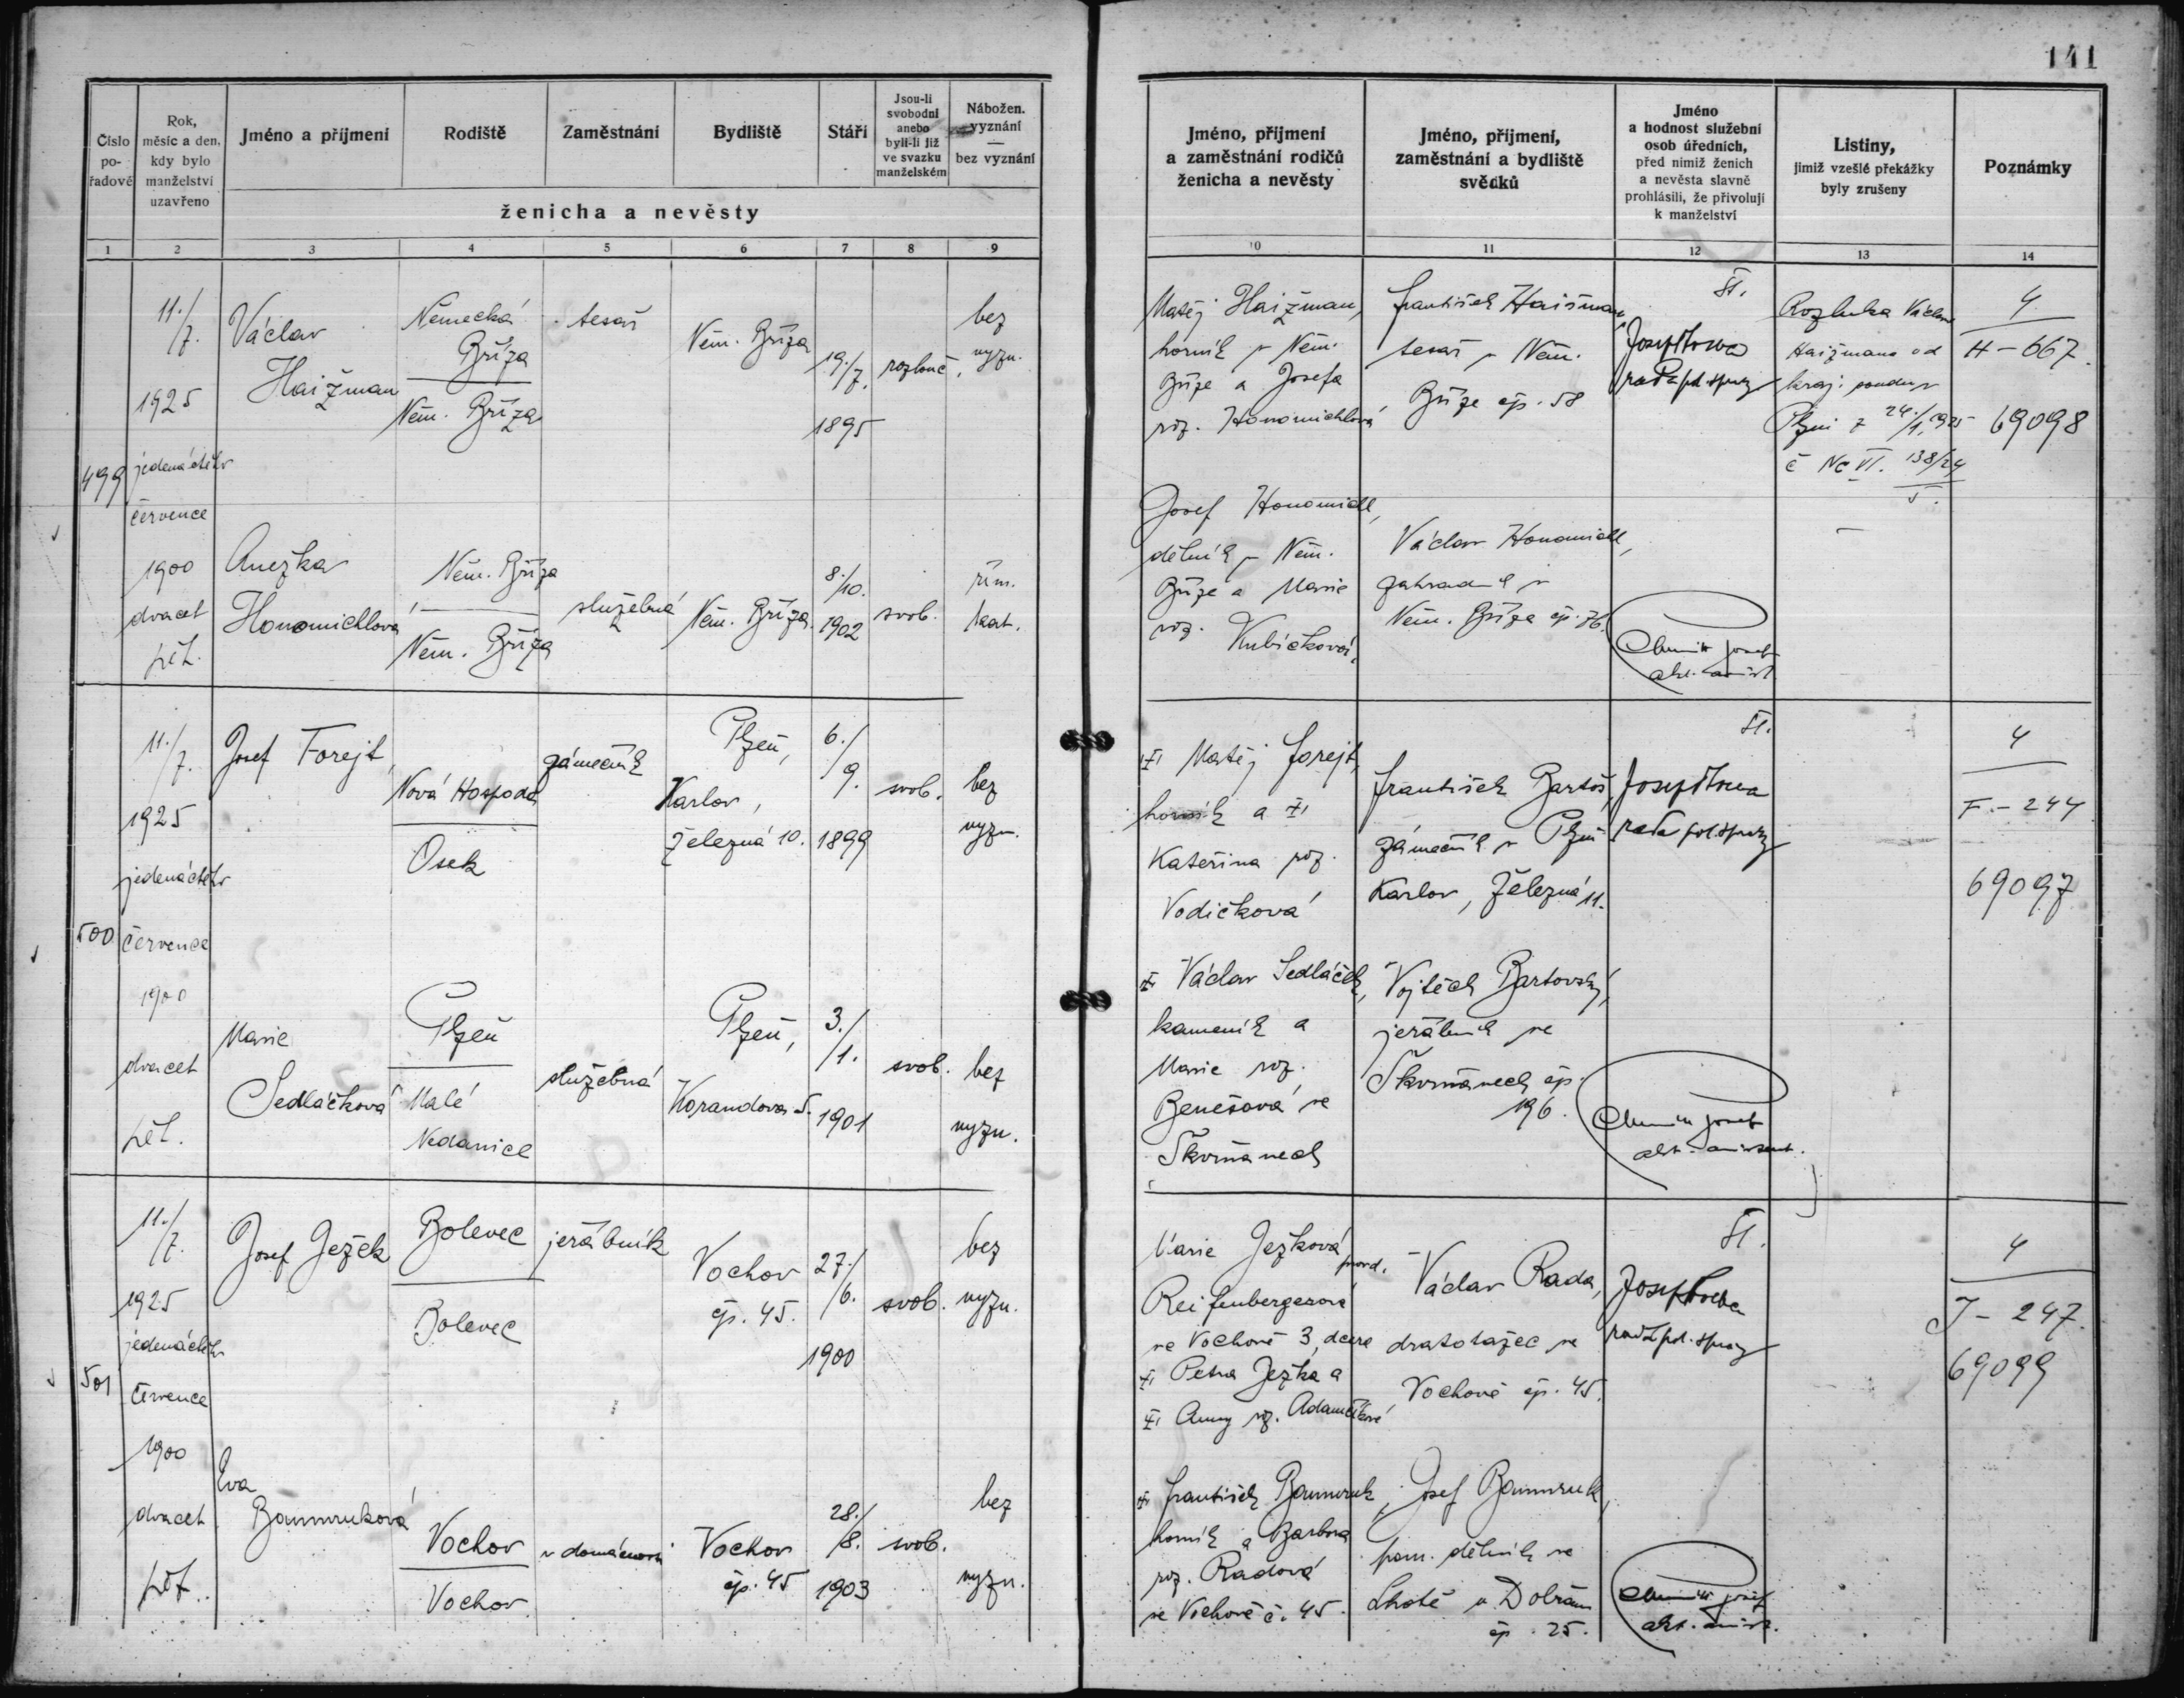 141
Číslo
po-
řadové
Rok,
měsíc a den,
kdy bylo
manželství
uzavřeno
Jméno a příjmení
Rodiště
Zaměstnání
Bydliště
Stáří
Jsou-li
svobodni
anebo
byli-li již
ve svazku
manželském
Nábožen.
vyznání
—
bez vyznání
ženicha a nevěsty
Jméno, příjmení
a zaměstnání rodičů
ženicha a nevěsty
Jméno, příjmení,
zaměstnání a bydliště
svědků
Jméno
a hodnost služební
osob úředních,
před nimiž ženich
a nevěsta slavně
prohlásili, že přivolují
k manželství
Listiny,
jimiž vzešlé překážky
byly zrušeny
Poznámky
1 2 3 4 5 6 7 8 9 10 11 12 13 14
499
11./7.
1925
jedenáctého
července
1900
dvacet
pět.
Václav
Haižman
Německá
Bříza
Něm. Bříza
tesař
Něm. Bříza
19./7.
1895
rozlouč.
bez
vyzn.
Matěj Haižman,
horník v Něm.
Bříze a Josefa
roz. Honomichlová
František Haišman
tesař v Něm.
Bříze čp. 58
Rozluka Václava
Haižmana od
kraj. soudu v
Plzni z 24./1. 1925
č Nc VI. 138/24
5.
4
H - 667
69098
Anežka
Honomichlova
Něm. Bříza
Něm. Bříza
služebná
Něm. Bříza
8./10.
1902
svob.
řím.
kat.
Josef Honomichl,
dělník v Něm.
Bříze a Marie
roz.
Kubíčková.
Václav Honomichl,
zahradník v
Něm. Bříze čp. 76.
500
11./7.
1925
jedenáctého
července
1900
dvacet
pět.
Josef Forejt,
Nová Hospoda
Osek
zámečník
Plzeň,
Karlov,
Železná 10.
6./9.
1899
svob.
bez
vyzn.
Matěj Forejt,
horník a
Kateřina roz.
Vodičková
František Bartoš,
zámečník v Plzni
Karlov, Železná 11.
4
F. - 244
69097
Marie
Sedláčková
Plzeň
Malé
Nedanice
služebná
Plzeň,
Korandova 5.
3./1.
1901
svob.
bez
vyzn.
Václav Sedláček,
kameník a
Marie roz.
Benešová ve
Škvrňanech
Vojtěch Bartovský,
jeřábník ve
Škvrňanech čp.
196.
501
11./7.
1925
jedenáctého
července
1900
dvacet
pět.
Josef Ježek
Bolevec
Bolevec
jeřábník
Vochov
čp. 45.
27./6.
1900
svob.
bez
vyzn.
Marie Ježková
provd.
Reifenbergerová
ve Vochově 3, dcera
Petra Ježka a
Anny roz. Adamčíkové
Václav Rada,
dratotažec ve
Vochově čp. 45.
4
J - 247.
69099
Eva
Bammruková
Vochov
Vochov
v domácnosti
Vochov
čp. 45
28./8.
1903
svob.
bez
vyzn.
František Bammruk,
horník a Barbora
roz. Radová
ve Vochově č. 45.
Josef Bammruk,
pom. dělník ve
Lhotě u Dobřan
čp. 25.